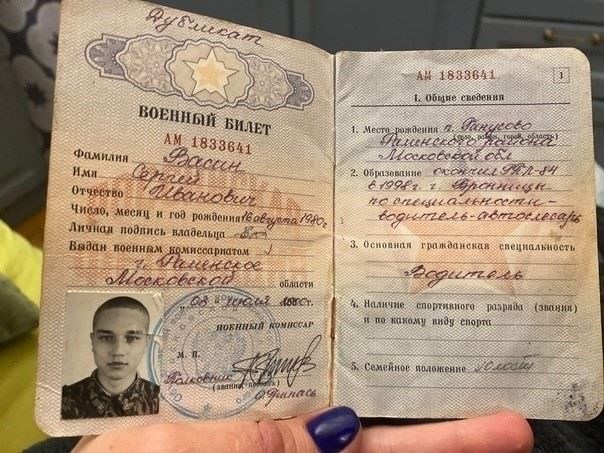 Дубликат
ВОЕННЫЙ БИЛЕТ
АМ 1833641
Фамилия Васин
Имя Сергей
Отчество Иванович
Число, месяц и год рождения 16 августа 1980г
Личная подпись владельца
Выдан военным комиссариатом
г. Раменское
Московской области
08 июля
ВОЕННЫЙ КОМИССАР
М. П.
Полковник
(звание, подпись)
АМ 1833641 1
I. Общие сведения
1. Место рождения п.
(село, район, город, область)
Раменского района
Московской обл
2. Образование окончил ПТЛ-84
в 1998г. г. Бронницы
по специальности-
водитель-автослесарь
3. Основная гражданская специальность
Водитель
4. Наличие спортивного разряда (звания)
и по какому виду спорта
5. Семейное положение холост